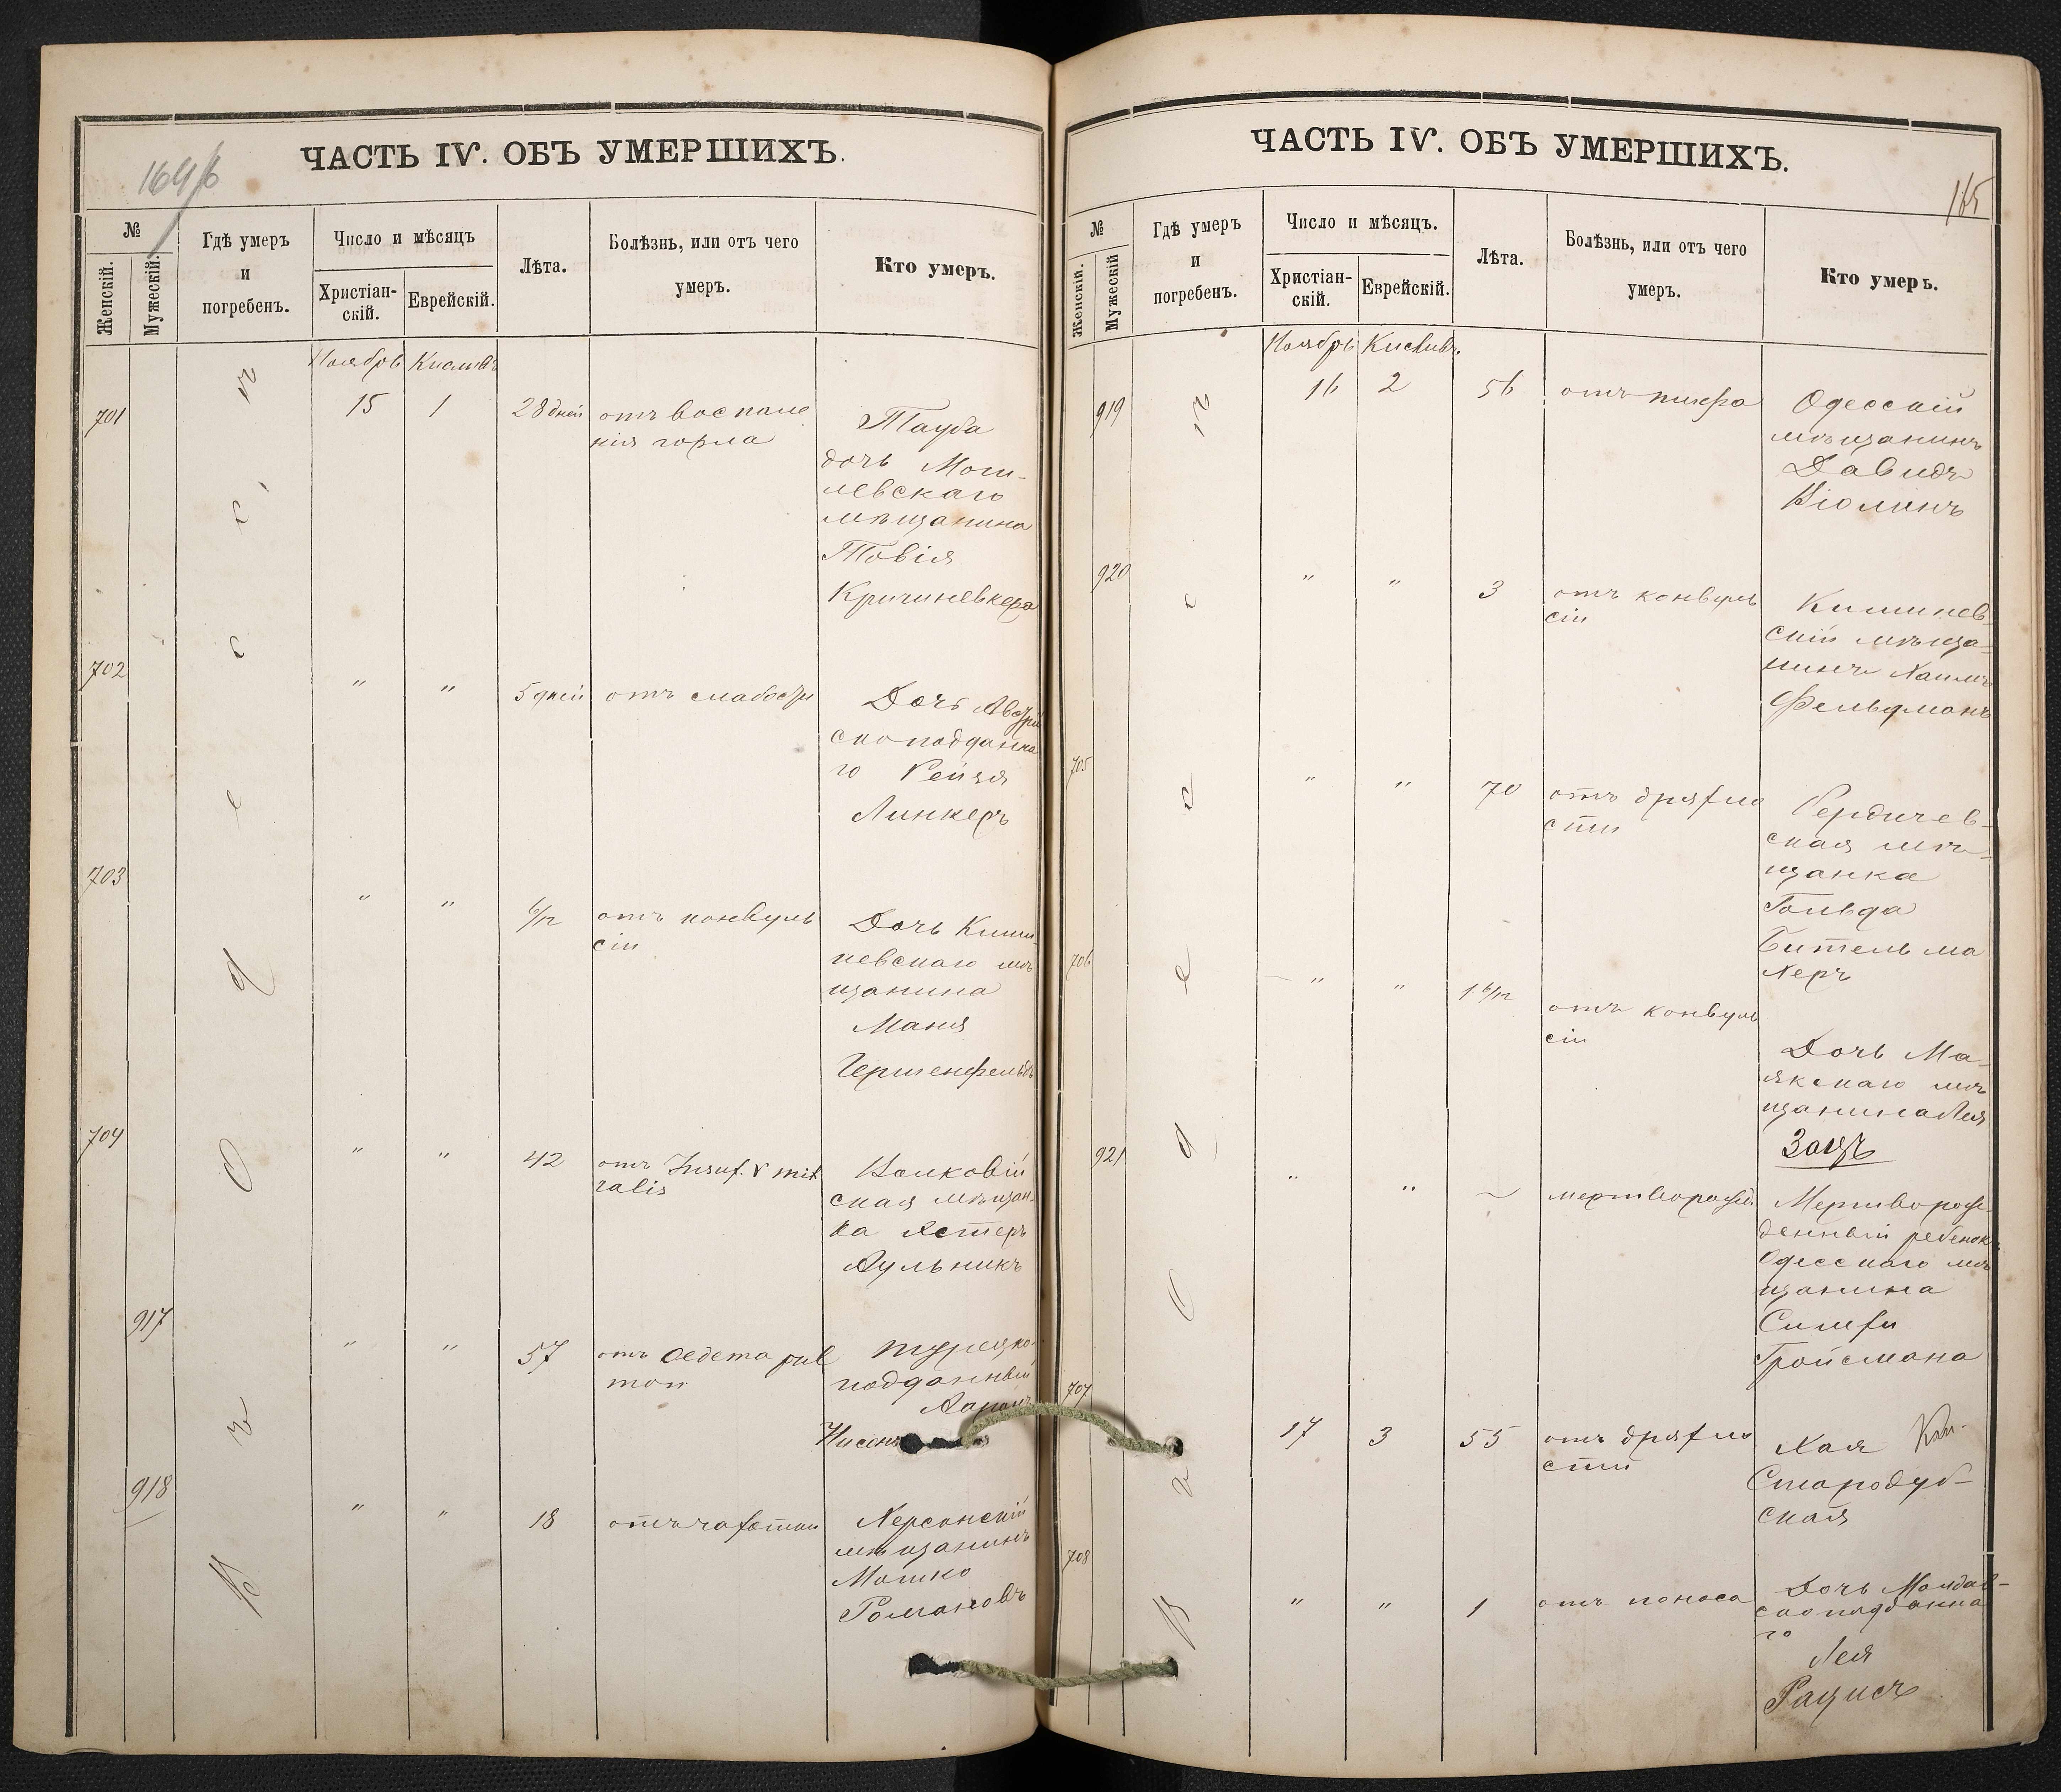 164
ЧАСТЬ IV. ОБЪ УМЕРШИХЪ.
№
Женскій.
Мужескій.
Гдѣ умеръ
и
погребенъ.
Число и мѣсяцъ
Христіан-
скій.
Еврейскій.
Лѣта.
Болѣзнь, или отъ чего
умеръ.
Кто умеръ.
Ноябрь Кислевъ
Въ Одессѣ
701 15 1 28 дней отъ воспале
нія горла
Тауба
дочь Моги-
левскаго
мѣщанина
Товія
702 " " 5 дней отъ слабости
Дочь Австрій
скоподданна
го Рейзя
Линкеръ
703 " " 6/12 отъ конвуль
сіи
Дочь Киши-
невскаго мѣ
щанина
Маня
Гершенфельдъ
704 " " 42 отъ Insuf. V mit
ralis
Волковій
ская мѣщан-
ка Эстеръ
917 " " 57 отъ Oedema pul
mon
Турецко-
подданный
Ааронъ
918 " " 18 отъ чахотки
Херсонскій
мѣщанинъ
Мошко
Романовъ
ЧАСТЬ IV. ОБЪ УМЕРШИХЪ.
165
№
Женскій.
Мужескій
Гдѣ умеръ
и
погребенъ.
Число и мѣсяцъ.
Христіан-
скій.
Еврейскій.
Лѣта.
Болѣзнь, или отъ чего
умеръ.
Кто умеръ.
Ноябрь Кислевъ
Въ Одессѣ
919 16 2 56 отъ тифа
Одесскій
мѣщанинъ
Давидъ
920 " " 3 отъ конвуль
сіи
Кишинев-
скій мѣща-
нинъ Хаимъ
Фельдманъ
705 " " 70 отъ дряхло
сти
Бердичев-
ская мѣ-
щанка
Гольда
Бительма
херъ
706 " " 1 6/12 отъ конвуль
сіи
Дочь Ма-
якскаго мѣ
щанина Лея
Зацъ
921 " " ~ мертворожд.
Мертворож
денный ребенокъ
Одесскаго мѣ
щанина
Симхи
Гройсмана
707 17 3 55 отъ дряхло
сти
Хая
Стародуб-
ская
708 " " 1 отъ поноса
Дочь Молдав-
скоподданна
го
Лея